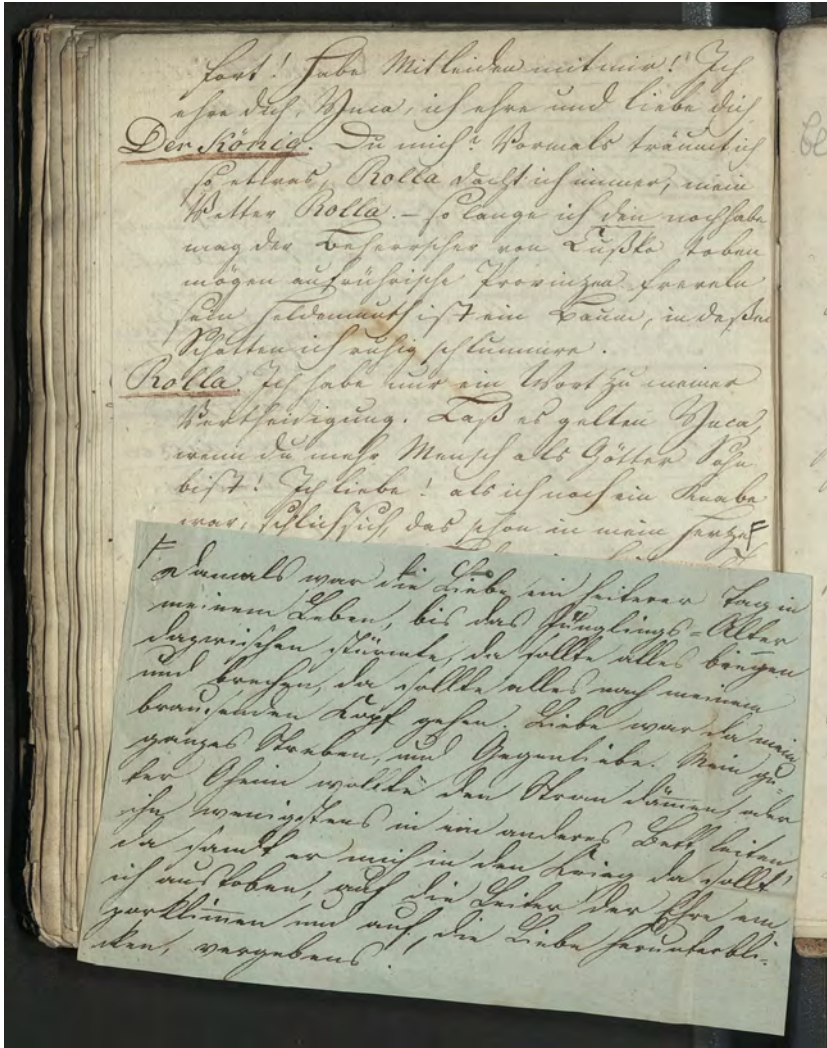 fort! Habe Mitleiden mit mir! Ich
ehre dich, Ynca, ich ehre und liebe dich
Der König. Du mich? Vormals träumt ich
so etwas, Rolla dacht ich immer, mein
Vetter Rolla. – so lange ich den noch habe
mag der Beherrscher von Cußko toben
mögen aufrührische Provinzen freveln
sein Heldenmuth ist ein Baum, in deßen
Schatten ich ruhig schlummre.
Rolla Ich habe nur ein Wort zu meiner
Vertheidigung. Laß es gelten Ynca,
wenn du mehr Mensch als Götter Sohn
bist! Ich liebe! als ich noch ein Knabe
war, schlich sich das schon in mein Herze F
F
Damals war die Liebe ein heiterer Tag in
meinem Leben, bis das Jünglings=Alter
dazwischen stürmte, da sollte alles biegen
und brechen, da sollte alles nach meinem
brausenden Kopf gehen. Liebe war da mein
ganzes Streben, und Gegenliebe. Mein gu=
ter Oheim wollte den Strom dämen, oder
ihn wenigstens in ein anderes Bett leiten
da sandt er mich in den Krieg da sollt'
ich austoben, auf die Leiter der Ehre em
porklimen und auf die Liebe herunterbli=
cken, vergebens.